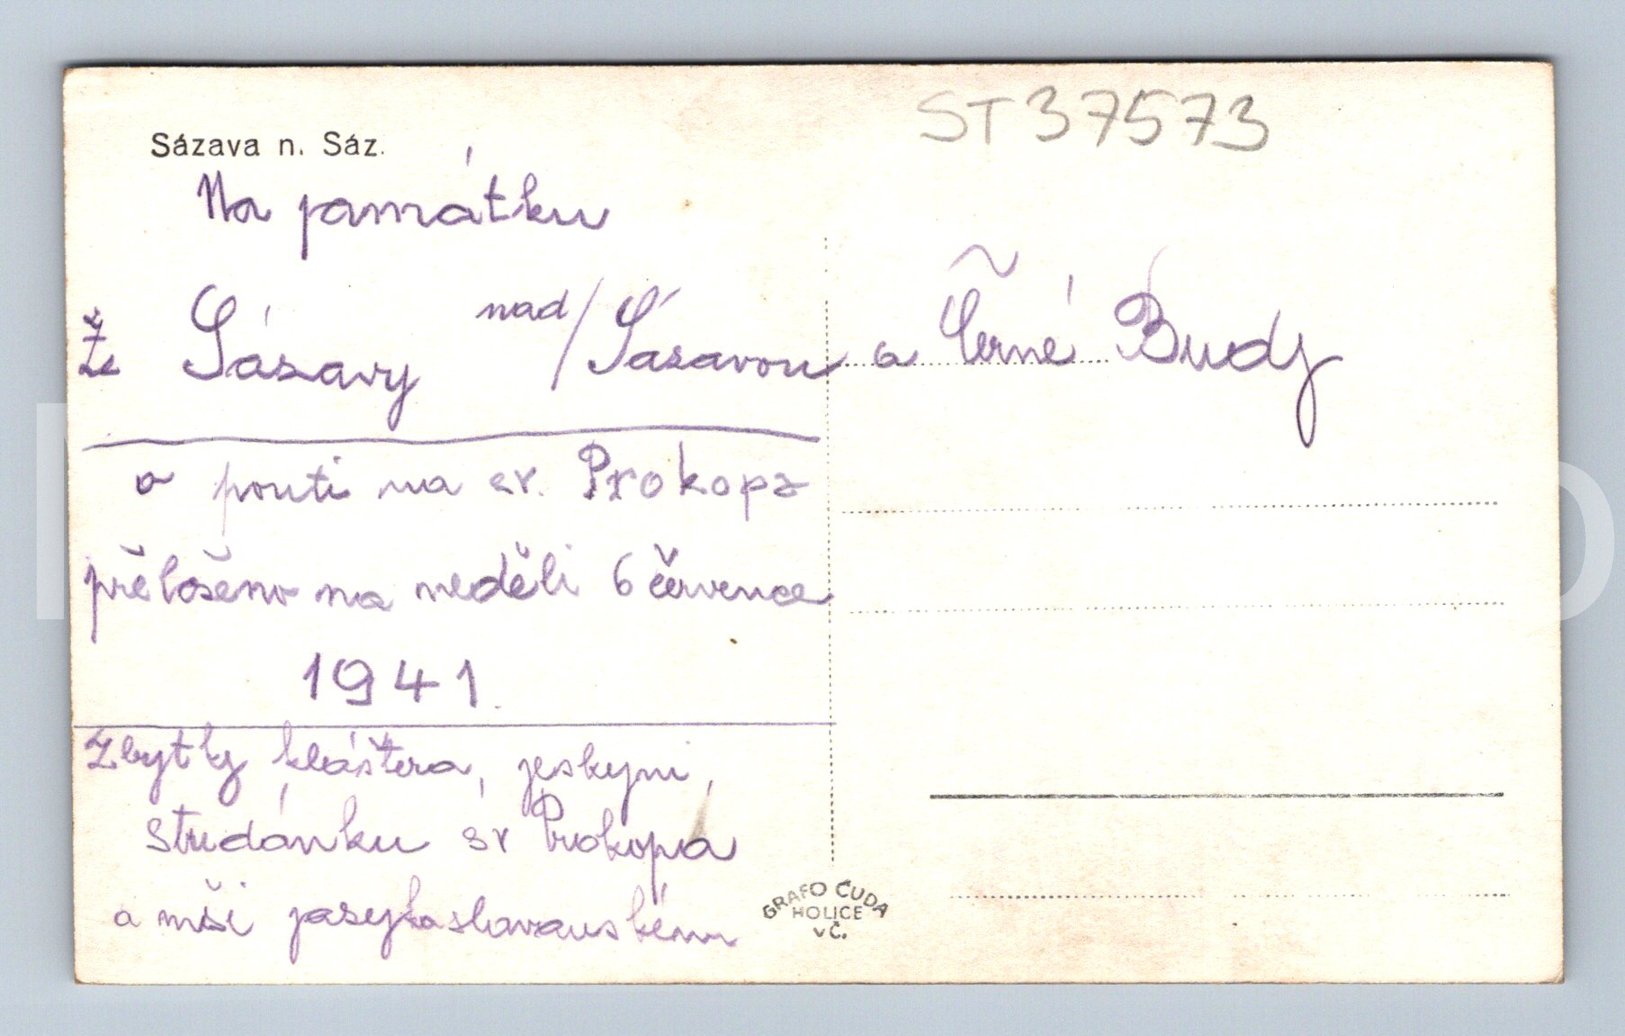 ST37573
Sázava n. Sáz.
Na památku
Ze Sázavy nad/Sázavou a Černé Budy
o pouti na sv. Prokopa
přeloženo na neděli 6 července
1941.
Zbytky kláštera, jeskyni,
studánku sv Prokopa
a mši jazykoslovanském
GRAFO ČUDA
HOLICE
v Č.